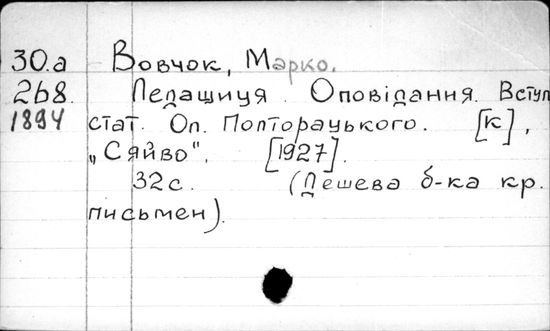 30.а Вовчок, Марко.
268. Ледащиця. Оповідання. Вступ
1894 стат. Ол. Полторацького. [К],
„Сяйво", [1927].
32 с. (Дешева б-ка кр.
письмен).